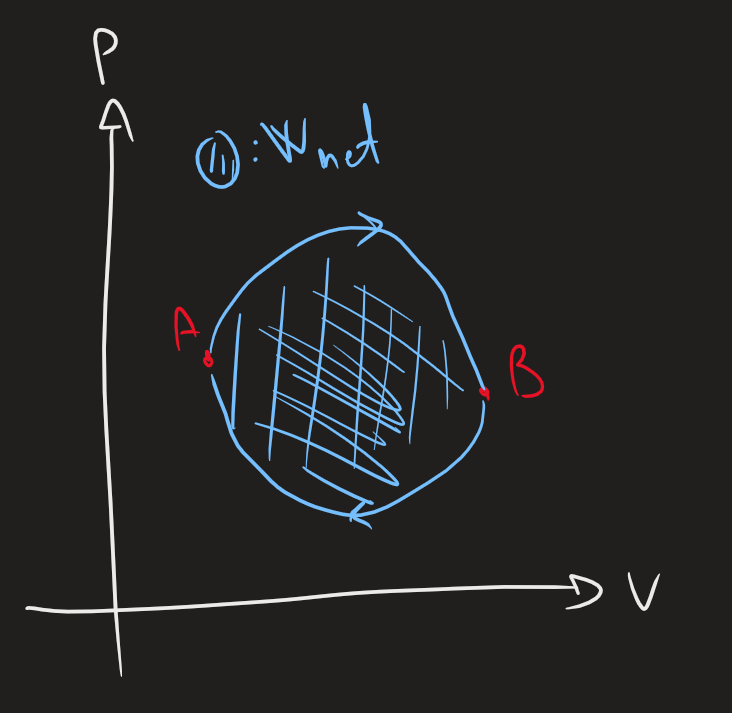 P
: Wnet
A
B
V